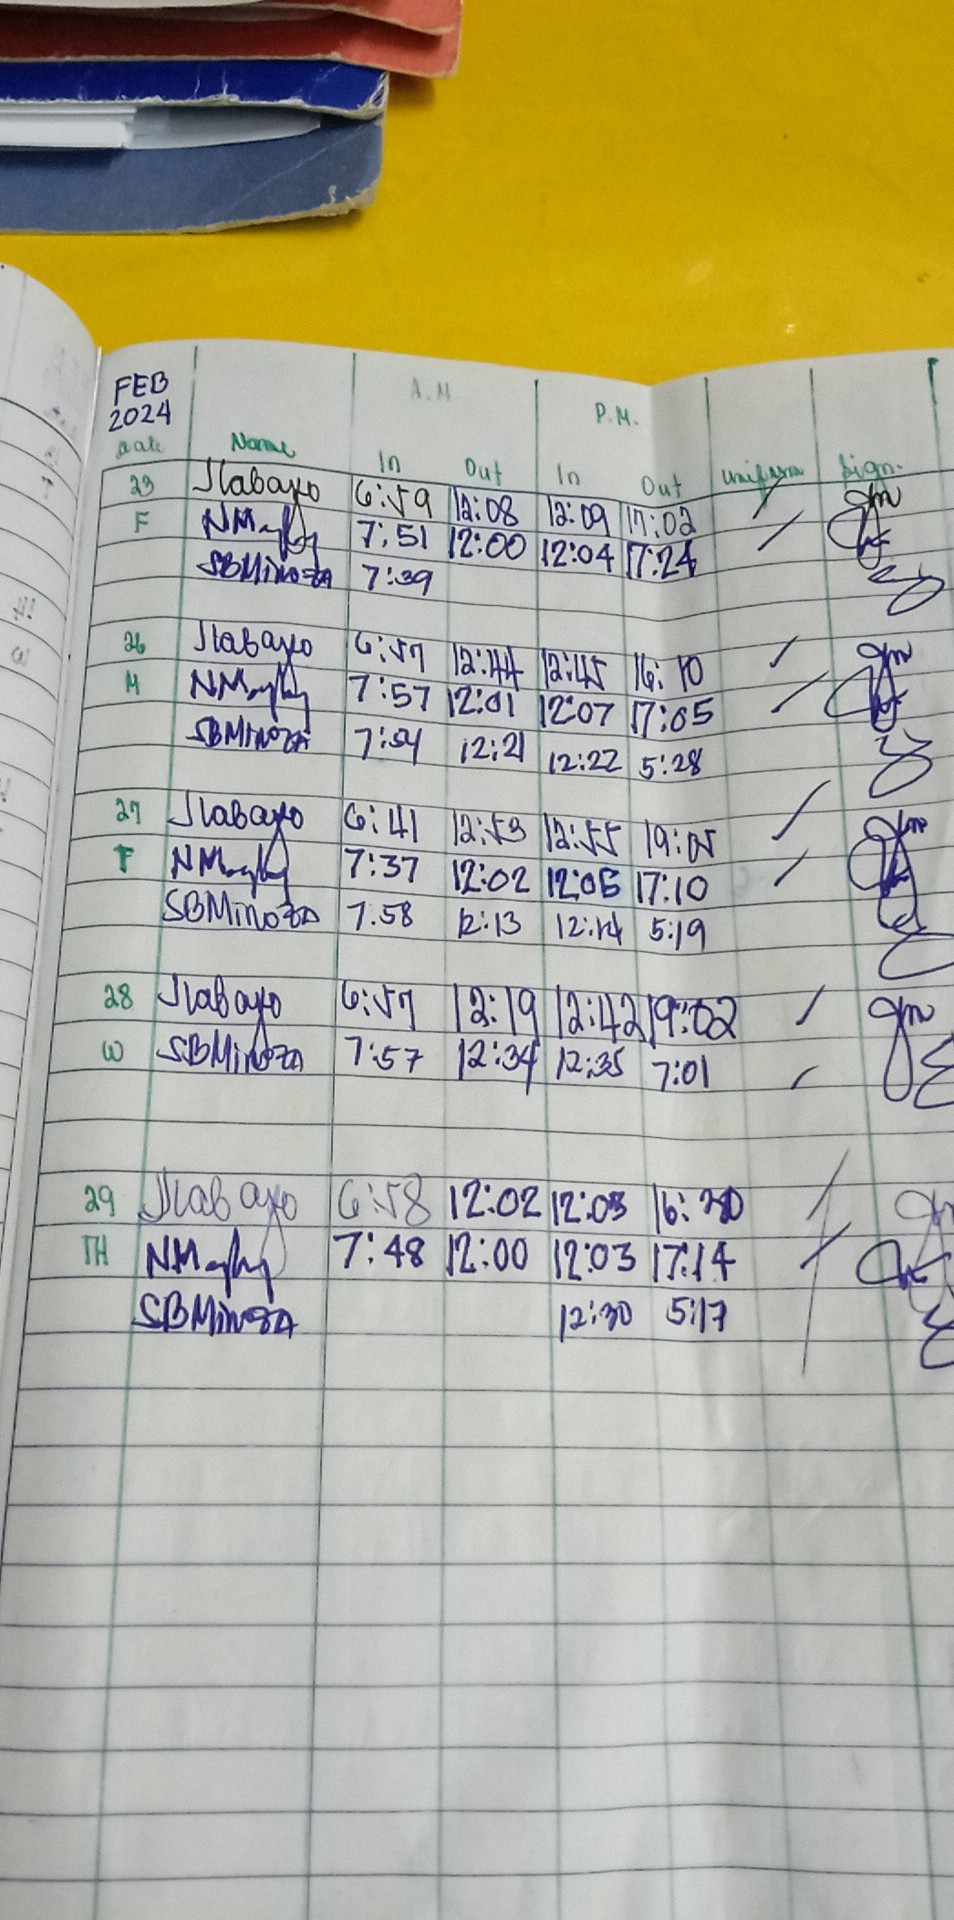 FEB
2024
A.M
P.M.
Date Name In Out In Out Uniform Sign.
23 Jlabayo 6:59 12:08 12:09 17:02 /
F 7:51 12:00 12:04 17:24 /
SBMinoza 7:39
26 Jlabayo 6:57 12:44 12:45 16:10 /
M 7:57 12:01 12:07 17:05 /
SBMinoza 7:54 12:21 12:22 5:28
27 Jlabayo 6:41 12:53 12:55 19:05 /
T 7:37 12:02 12:05 17:10 /
SBMinoza 7:58 12:13 12:14 5:19
28 Jlabayo 6:57 12:19 12:42 19:02 /
W SBMinoza 7:57 12:34 12:35 7:01 /
29 Jlabayo 6:58 12:02 12:03 /
TH 7:48 12:00 12:03 17:14 /
SBMinoza 12:30 5:17